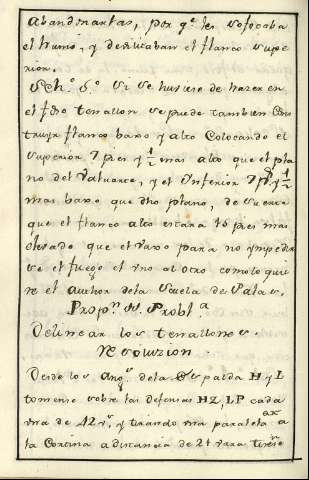 abandonarlas, por q.e les sofocaba
el humo, y desticaban el flanco supe
rior.
Sch.o S.o Si se hubiese de hazer en
el dho tenallon se puede tambien Cons
truyr flanco baxo y alto Colocando el
superior 7 pies y 1/2 mas alto que el pla
no del Valuarte, y el Ynferior 7 p.s y 1/2
mas baxo que dho plano, de suerte
que el flanco alto estara 15 pies mas
elevado que el vaxo para no ympedir
se el fuego el uno al otro como lo quie
re el author de la Scuela de Palas.
Prop.n Probl.a
Delinear los tenallones.
Resoluzion.
Desde los Ang.s de la Espalda H y L
tomense sobre las defensas HZ, LP cada
una de 42 v.s y tirando una paralela
a la Cortina a distancia de 21 vara